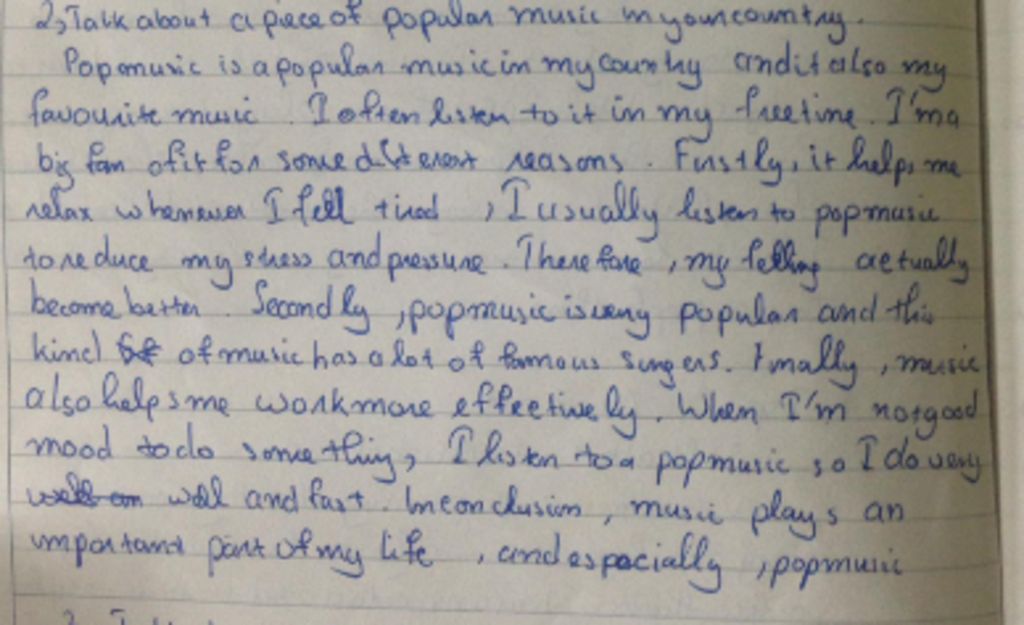 2, Talk about a piece of popular music in your country.
Popmusic is a popular music in my country and it also my
favourite music. I often listen to it in my freetime. I'm a
big fan of it for some different reasons. Firstly, it helps me
relax whenever I fell tired, I usually listen to popmusic
to reduce my stress and pressure. Therefore, my felling actually
become better. Secondly, popmusic is very popular and this
kind of music has a lot of famous singers. Finally, music
also helps me work more effectively. When I'm not good
mood to do something, I listen to a popmusic so I do very
well and fast. In conclusion, music plays an
important part of my life, and especially, popmusic